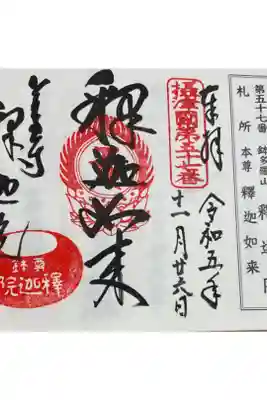 第五十七番 鉢多羅山
札所本尊 釋迦如来
奉拝
令和五年
十一月廿六日
攝津國第五十七番
釋迦如来
釋迦院
尊鉢
釋迦院